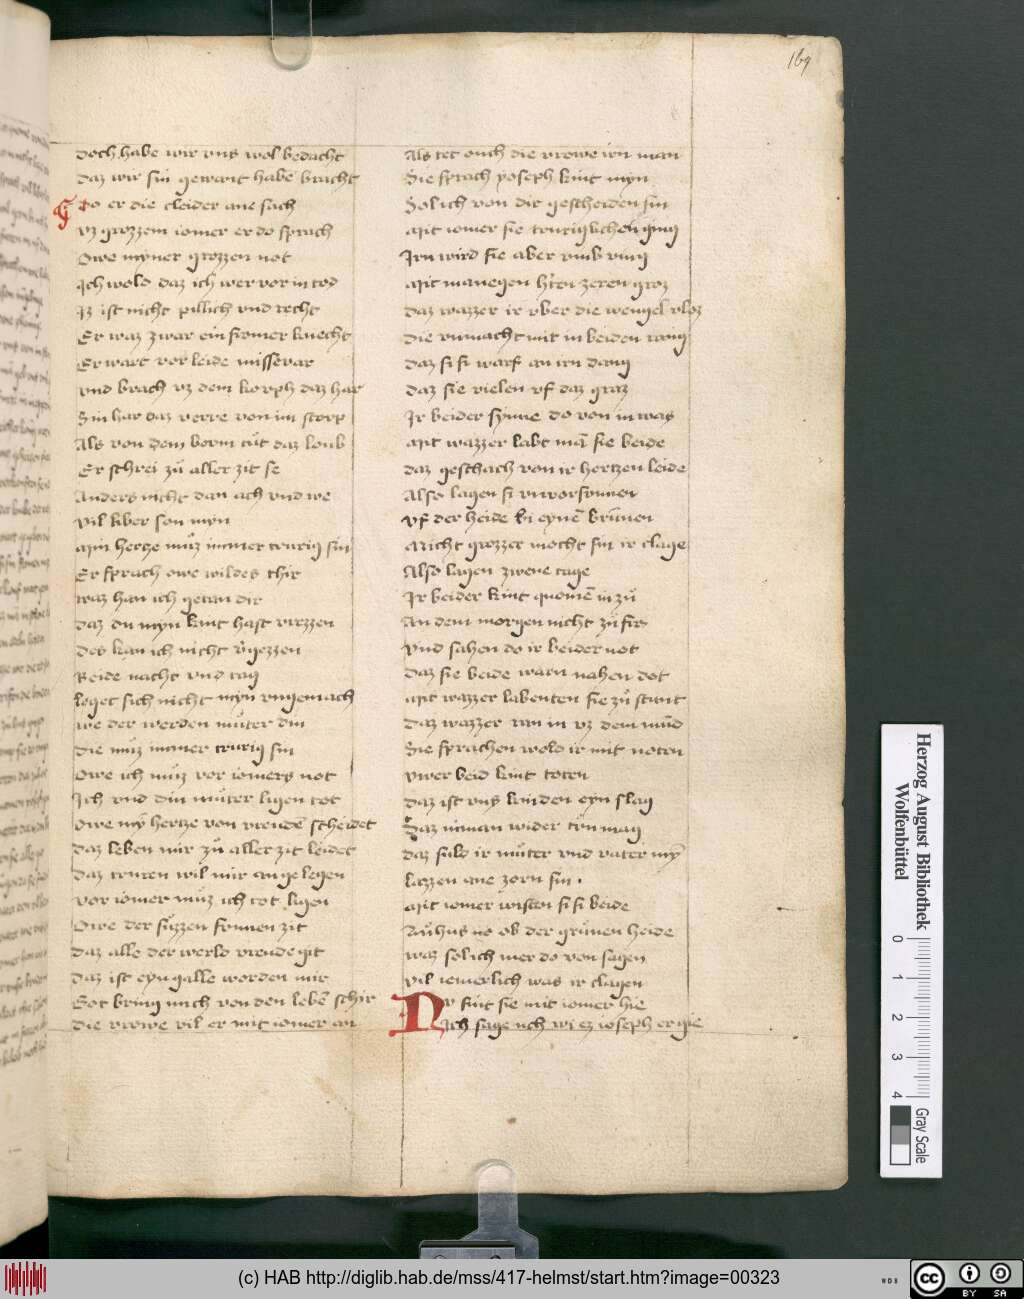 169
Doch habe wir vns wol bedacht
Daz wir sin gewant habē bracht
Do er die cleider ane sach
Vz grozzem iomer er do sprach
Owe myner grozzen not
Ich wolo daz ich wer vor in tod
Iz ist nicht pillich vnd recht
Er waz zwar ein fromer knecht
Er wart vor leide missevar
Vnd brach vz dem kopph daz har
Sin har daz verre von im storp
Als von dem bovm tůt daz loub
Er schrei zů aller zit se
Anders nicht dan ach vnd we
Vil liber son myn
Min hertze můz immer trurig sin
Er sprach owe wildes thir
Waz han ich getan dir
Daz du myn kint hast vrezzen
Des kan ich nicht v'gezzen
Beide nacht vnd tag
Leget sich nicht myn vngemach
We der werden můter din
Die můz immer trurig sin
Owe ich můz vor iomers not
Ich vnd din můter ligen tot
Owe mȳ hertze von vreudē scheidet
Daz leben mir zů aller zit leidet
Daz truren wil mir an gelegen
Vor iomer můz ich tot ligen
Owe der sůzzen sonnen zit
Daz alle der werlo vreude git
Daz ist eyn galle worden mir
Got bring mich von den lebē schir
Die vrowe vil er mit iomer an
Als tet ouch die vrowe irn man
Sie sprach yoseph kint myn
Sol ich von dir gescheiden sin
Mit iomer sie truriglichen ging
Irn wird sie aber vmb ving
Mit manegen h'ten zeren groz
Daz wazzer ir vber die wengel vloz
Die vnmacht mit in beiden rang
Daz si si warf an irn dang
Daz sie vielen vf daz graz
Ir beider synne do von in was
Mit wazzer labt mā sie beide
Daz geschach von ir hertzen leide
Also lagen si vnvorsunnen
Vf der heide bi eynē brūnen
Nicht grozzer mocht sin ir clage
Also lagen zwene tage
Ir beider kint quomē in zů
An dem morgen nicht zů fro
Vnd sahen do ir beider not
Daz sie beide warn nahen dot
Mit wazzer labenten sie zů stunt
Daz wazzer ran in vz dem mūd
Sie sprachen wolo ir mit noten
Vwer beid kint toten
Daz ist vns kinden eyn slag
Daz niman wider tůn mag
Daz sulo ir můter vnd vater mȳ
Lazzen ane zorn sin .
Mit iomer wisten si si beide
Zů hus no ob der grůnen heide
Waz sol ich mer do von sagen
Vil iemerlich was ir clagen
Nv sint sie mit iomer hie
Ich sage uch wi ez ioseph ergie
Herzog August Bibliothek
Wolfenbüttel
0 1 2 3 4
Gray Scale
(c) HAB http://diglib.hab.de/mss/417-helmst/start.htm?image=00323
WDB
cc BY SA